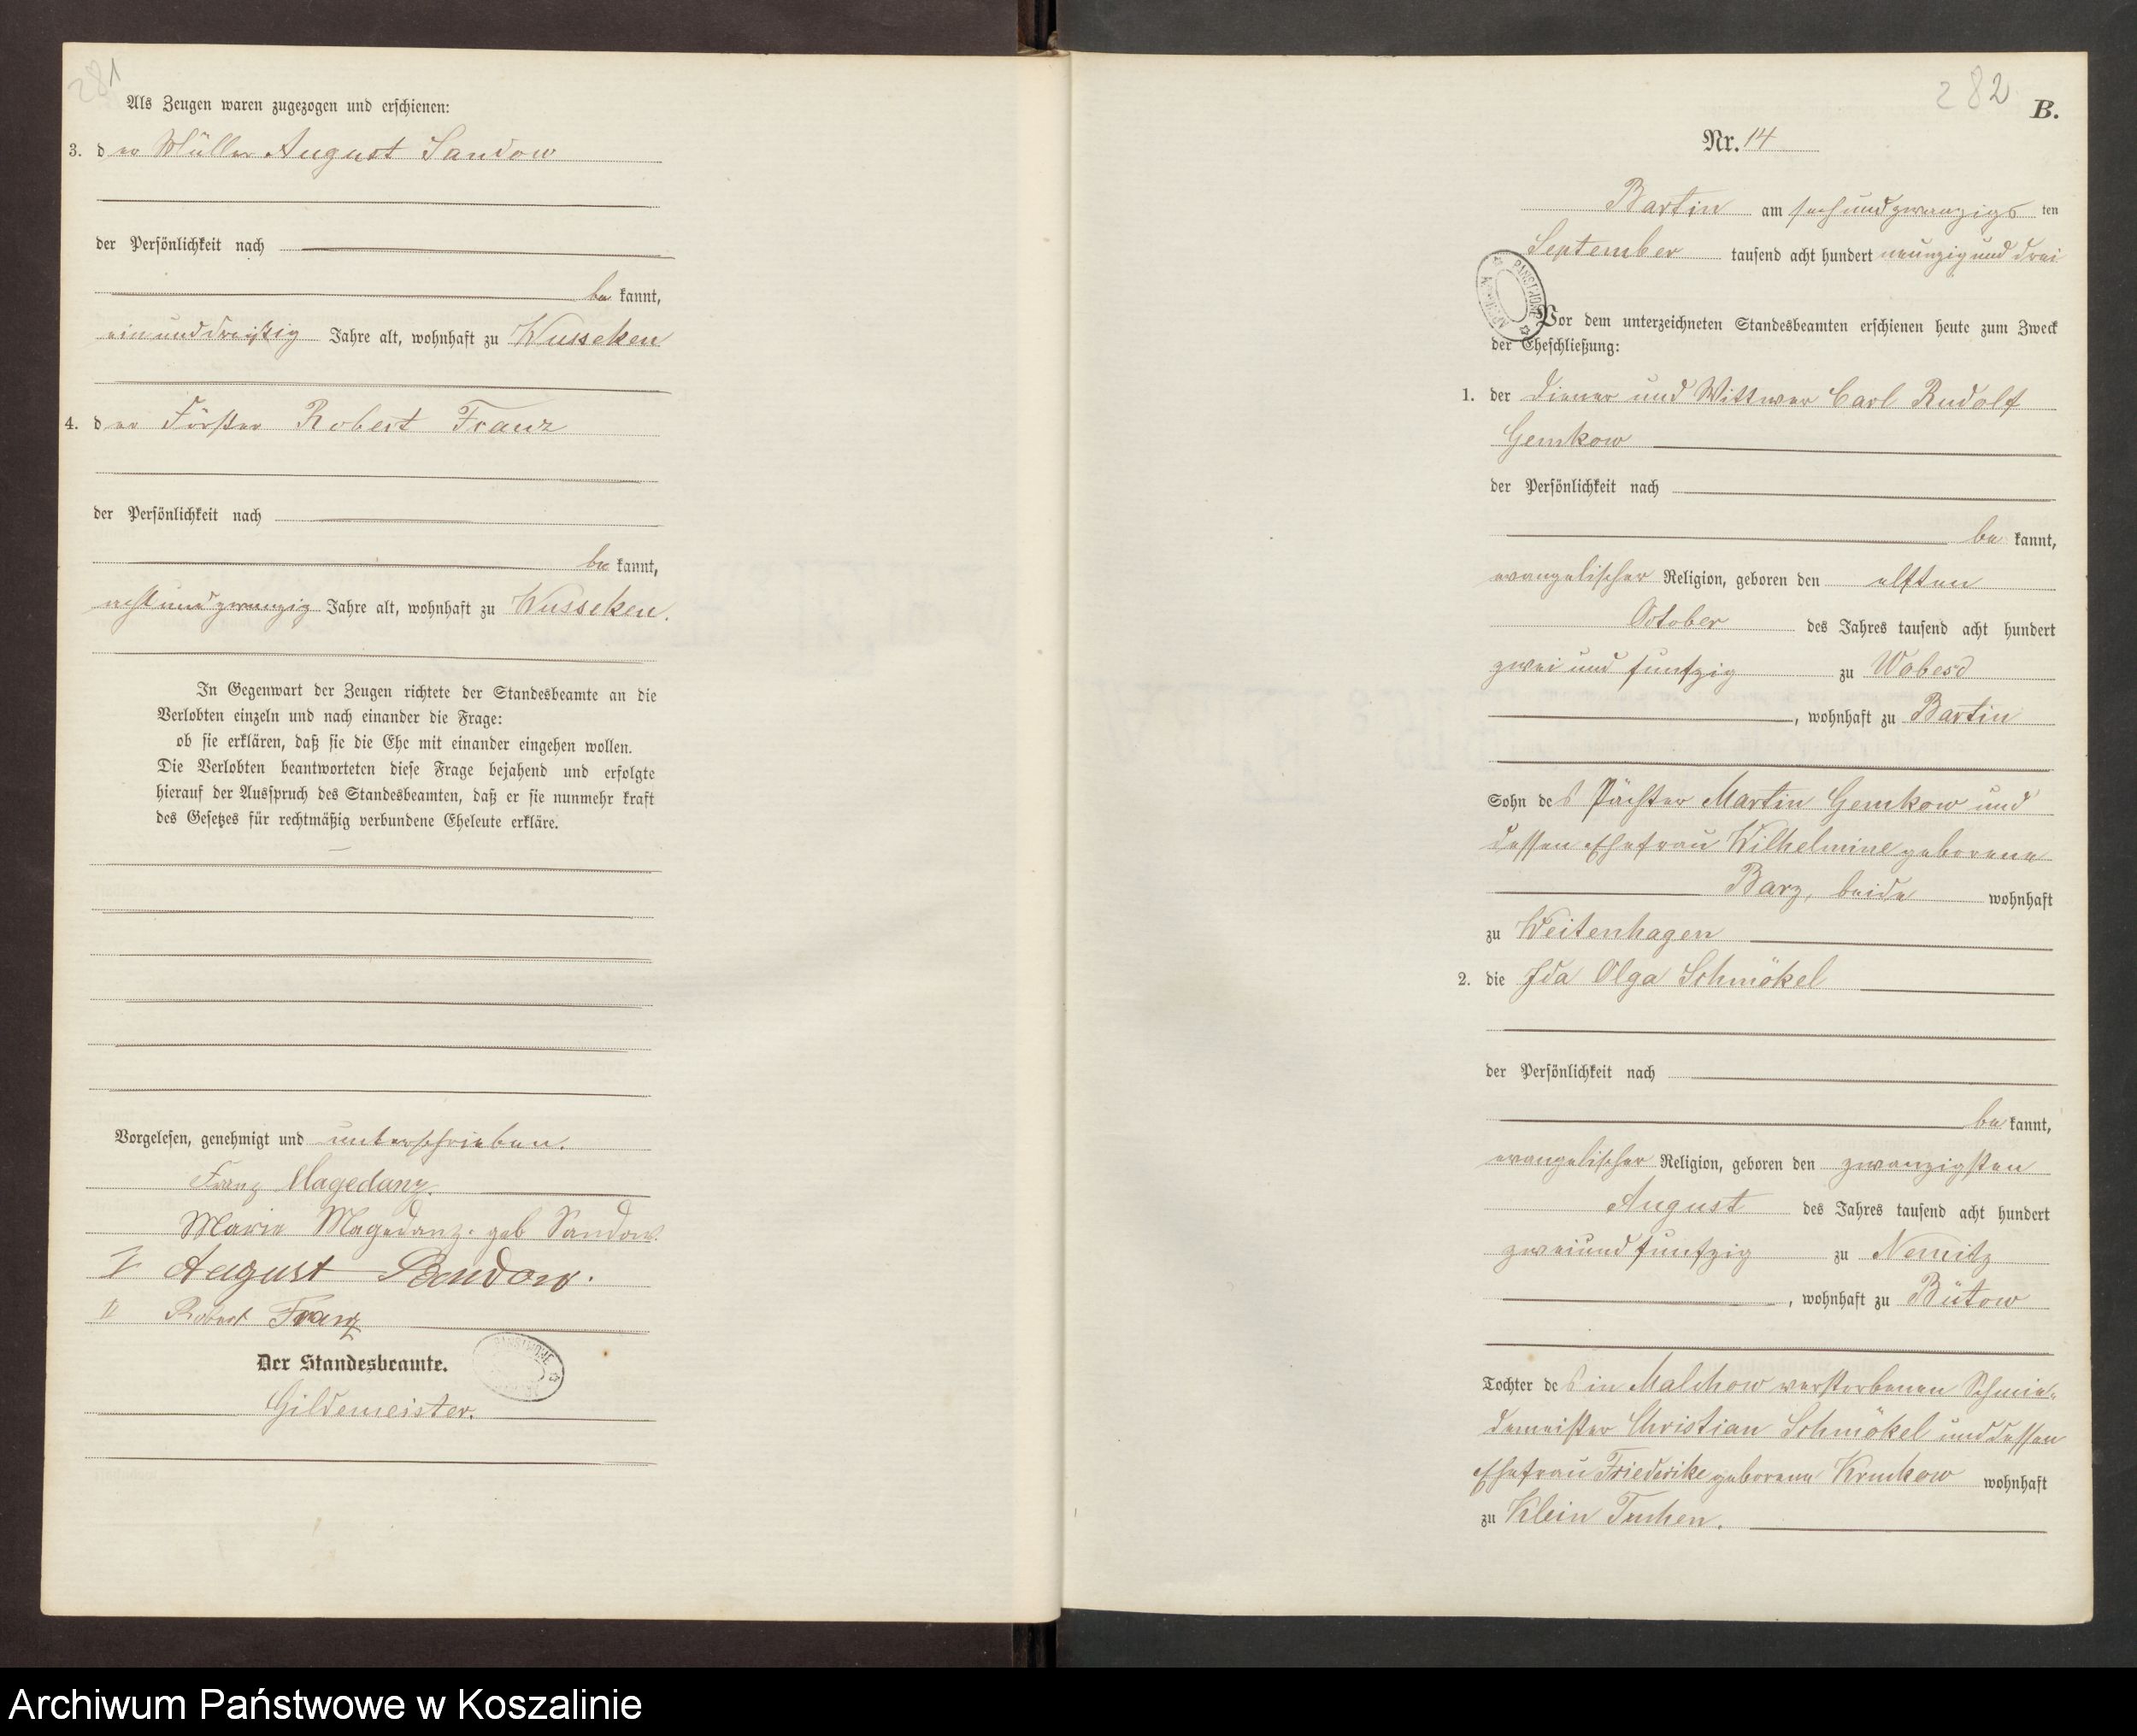 281
Als Zeugen waren zugezogen und erschienen:
3. der Müller August Sandow
der Persönlichkeit nach
bekannt,
einunddreißig Jahre alt, wohnhaft zu Wusseken
4. der Förster Robert Franz
der Persönlichkeit nach
bekannt,
achtundzwanzig Jahre alt, wohnhaft zu Wusseken.
In Gegenwart der Zeugen richtete der Standesbeamte an die
Verlobten einzeln und nach einander die Frage:
ob sie erklären, daß sie die Ehe mit einander eingehen wollen.
Die Verlobten beantworteten diese Frage bejahend und erfolgte
hierauf der Ausspruch des Standesbeamten, daß er sie nunmehr kraft
des Gesetzes für rechtmäßig verbundene Eheleute erkläre.
Vorgelesen, genehmigt und unterschrieben.
Franz Magedanz.
Marie Magedanz. geb Sandow.
I August Sandow.
II Robert Franz
Der Standesbeamte.
Gildemeister.
282
B.
Nr. 14
Bartin am sechsundzwanzigsten
September tausend acht hundert neunzig und drei
Vor dem unterzeichneten Standesbeamten erschienen heute zum Zweck
der Eheschließung:
1. der Diener und Wittwer Carl Rudolf
Gemkow
der Persönlichkeit nach
bekannt,
evangelischer Religion, geboren den elften
October des Jahres tausend acht hundert
zwei und funfzig zu Wobesd
, wohnhaft zu Bartin
Sohn des Pächter Martin Gemkow und
dessen Ehefrau Wilhelmine geborene
Barz, beide wohnhaft
zu Weitenhagen
2. die Ida Olga Schmökel
der Persönlichkeit nach
bekannt,
evangelischer Religion, geboren den zwanzigsten
August des Jahres tausend acht hundert
zweiund funfzig zu Nemitz
, wohnhaft zu Bütow
Tochter des in Malchow verstorbenen Schmie-
demeister Christian Schmökel und dessen
Ehefrau Friederike geborene wohnhaft
zu Klein Tuchen.
Archiwum Państwowe w Koszalinie